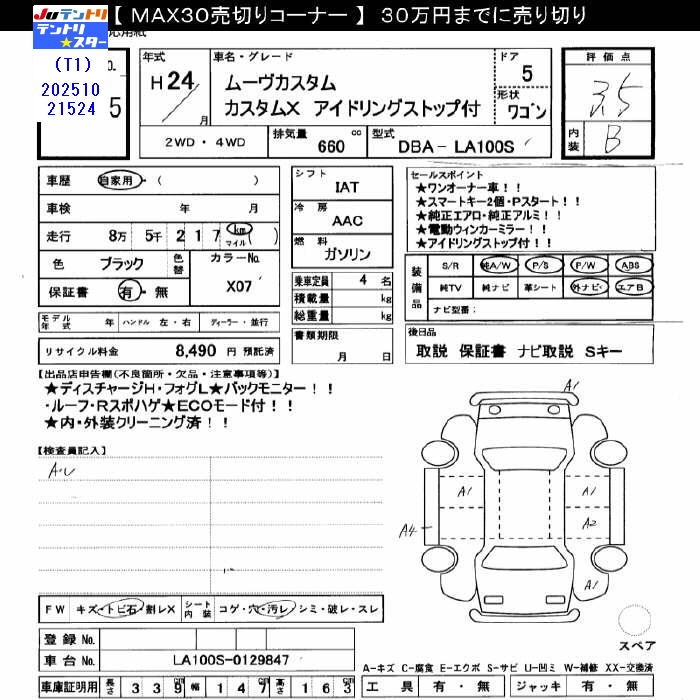 【 MAX30売切りコーナー 】 30万円までに売り切り
Juテントリ
Juテントリ
テントリ★スター
(T1)
202510
21524
No.
5
年式
H24
月
車名・グレード
ムーヴカスタム
カスタムX アイドリングストップ付
ドア
5
形状
ワゴン
2WD・4WD
排気量 660 cc
型式 DBA- LA100S
評価点
3.5
内装 B
車歴 自家用・( )
車検 年 月
走行 8万 5千 2 1 7 km マイル ( )
色 ブラック 色替
カラーNo.
X07
保証書 有・無
シフト
IAT
冷房
AAC
燃料
ガソリン
セールスポイント
★ワンオーナー車!!
★スマートキー2個・Pスタート!!
★純正エアロ・純正アルミ!!
★電動ウィンカーミラー!!
★アイドリングストップ付!!
乗車定員 4 名
積載量 kg
総重量 kg
装備品
S/R 純A/W P/S P/W ABS
純TV 純ナビ 革シート 外ナビ エアB
ナビ型番:
モデル年式 年 ハンドル 左・右 ディーラー・並行
リサイクル料金 8,490 円 預託済
書類期限
月 日
後日品
取説 保証書 ナビ取説 Sキー
【出品店申告欄(不良箇所・欠品・注意事項等)】
★ディスチャージH・フォグL★バックモニター!!
・ルーフ・Rスポハゲ★ECOモード付!!
★内・外装クリーニング済!!
【検査員記入】
A・U
A1
A1
A1
A2
A4
A1
FW キズ・トビ石・割レX
シート内装 コゲ・穴・汚レ・シミ・破レ・スレ
登録 No.
車台 No. LA100S-0129847
車庫証明用 長さ 3 3 9 cm 幅 1 4 7 cm 高さ 1 6 3 cm
スペア
A-キズ C-腐食 E-エクボ S-サビ U-凹ミ W-補修 XX-交換済
工具 有・無 ジャッキ 有・無